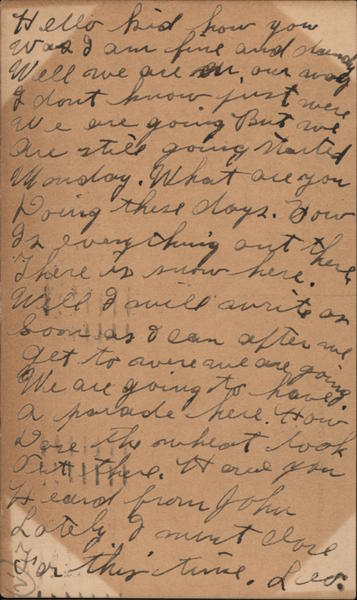 Hello kid how you
Was I am fine and dandy
Well we are on our way
I dont know just were
We are going But we
Are still going Started
Monday. What are you
Doing these days. How
Is everything out there
There is snow here.
Well I will write as
Soon as I can after we
get to were we are going
We are going to have
a parade here. How
Dose the wheat look
Out there. Have you
Heard from John
Lately I must close
For this time. Leo.